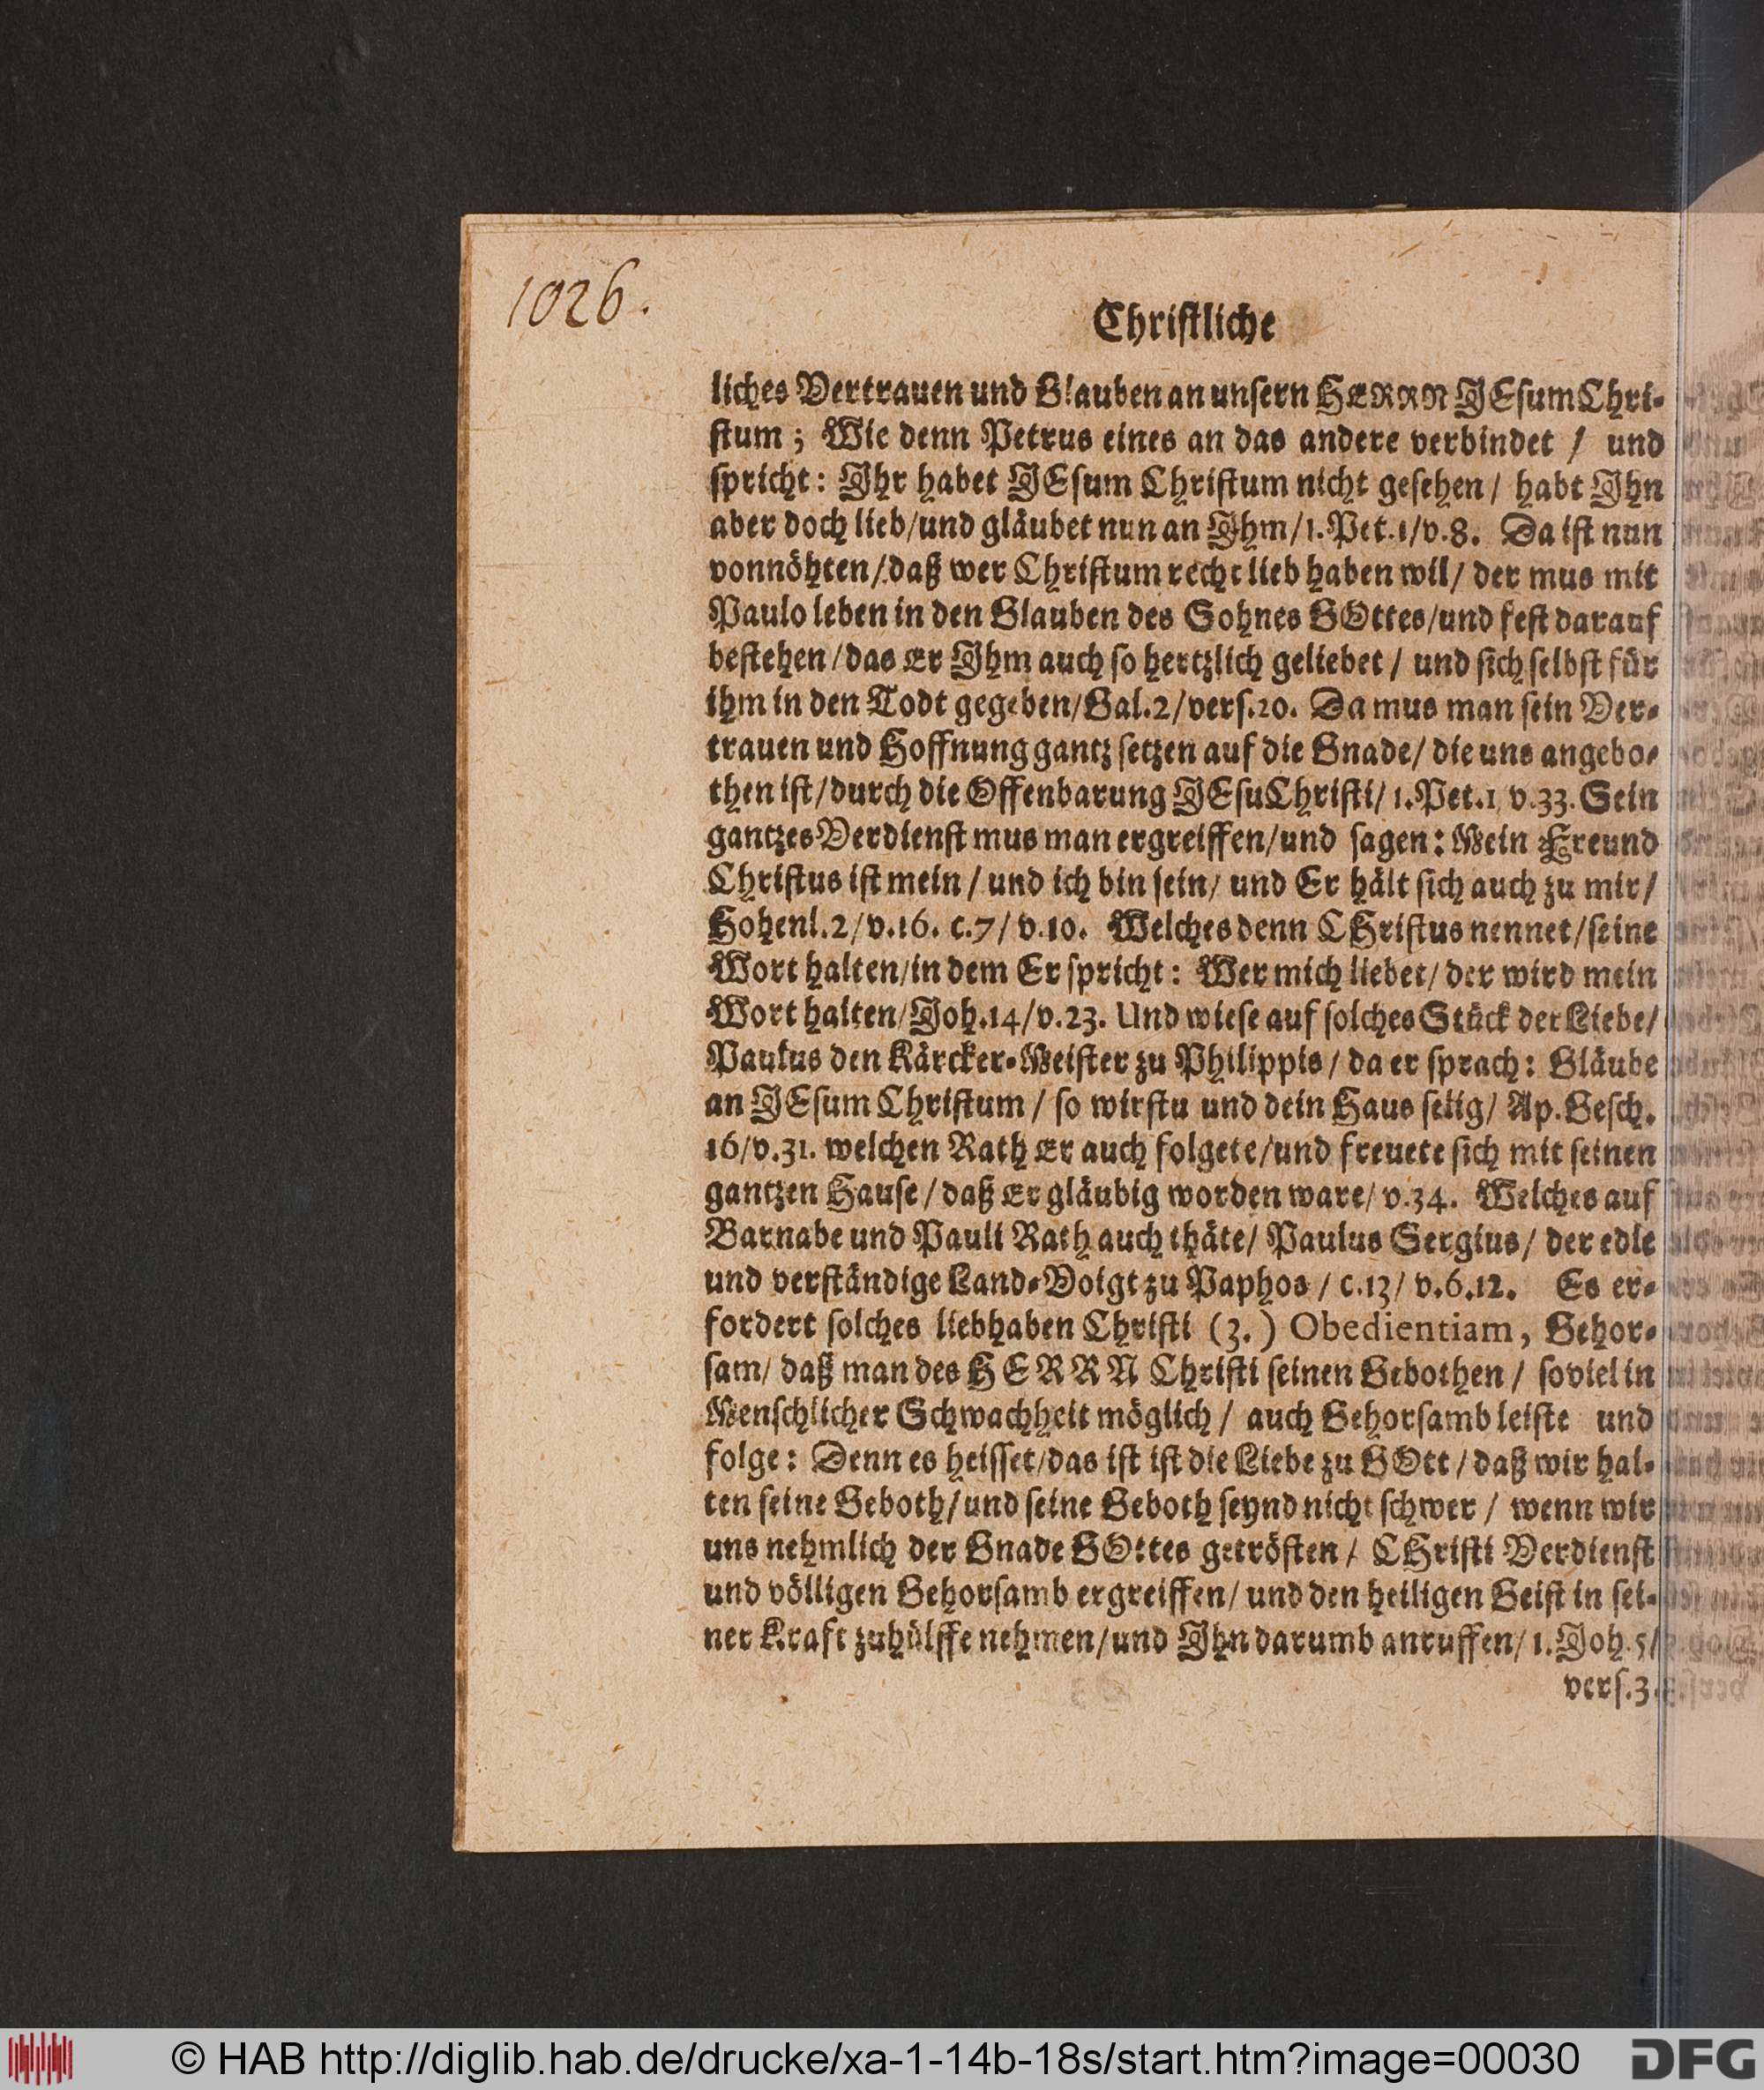 1026.
Christliche
liches Vertrauen und Glauben an unsern HERRN JEsum Chri-
stum; Wie denn Petrus eines an das andere verbindet / und
spricht: Ihr habet JEsum Christum nicht gesehen / habt Ihn
aber doch lieb/und gläubet nun an Ihm/1.Pet.1/v.8. Da ist nun
vonnöhten/daß wer Christum recht lieb haben wil/ der mus mit
Paulo leben in den Glauben des Sohnes GOttes/und fest darauf
bestehen/das Er Ihm auch so hertzlich geliebet / und sich selbst für
ihm in den Todt gegeben/Gal.2/vers.20. Da mus man sein Ver-
trauen und Hoffnung gantz setzen auf die Gnade/ die uns angebo-
then ist/durch die Offenbarung JEsu Christi/ 1.Pet.1 v.33. Sein
gantzes Verdienst mus man ergreiffen/und sagen: Mein Freund
Christus ist mein / und ich bin sein/ und Er hält sich auch zu mir/
Hohenl.2/v.16. c.7/ v.10. Welches denn CHristus nennet/seine
Wort halten/in dem Er spricht: Wer mich liebet/ der wird mein
Wort halten/Joh.14/v.23. Und wiese auf solches Stück der Liebe/
Paulus den Kärcker-Meister zu Philippis / da er sprach: Gläube
an JEsum Christum / so wirstu und dein Haus selig/ Ap. Gesch.
16/v.31. welchen Rath Er auch folgete/und freuete sich mit seinen
gantzen Hause / daß Er gläubig worden ware/ v.34. Welches auf
Barnabe und Pauli Rath auch thäte/ Paulus Sergius/ der edle
und verständige Land-Voigt zu Paphos / c.13/ v.6.12. Es er-
fordert solches liebhaben Christi (3.) Obedientiam, Gehor-
sam/ daß man des HERRN Christi seinen Gebothen / soviel in
Menschlicher Schwachheit möglich / auch Gehorsamb leiste und
folge: Denn es heisset/das ist ist die Liebe zu GOtt / daß wir hal-
ten seine Geboth/und seine Geboth seynd nicht schwer / wenn wir
uns nehmlich der Gnade GOttes getrösten / CHristi Verdienst
und völligen Gehorsamb ergreiffen/ und den heiligen Geist in sei-
ner Kraft zuhülffe nehmen/und Ihn darumb anruffen/ 1.Joh.5/
vers.3.
© HAB http://diglib.hab.de/drucke/xa-1-14b-18s/start.htm?image=00030
DFG